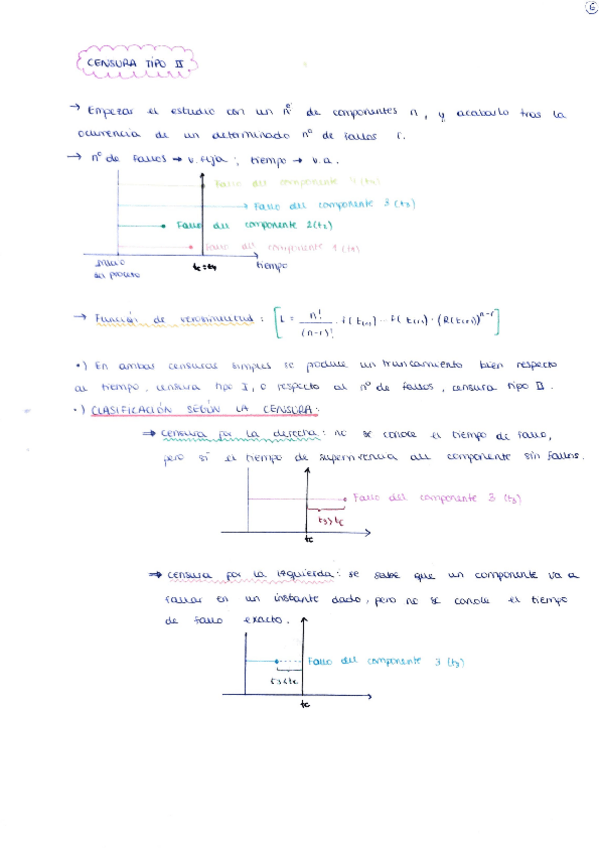 6
CENSURA TIPO II
→ Empezar el estudio con un nº de componentes n, y acabarlo tras la
ocurrencia de un determinado nº de fallos r.
→ nº de fallos → v. fija; tiempo → v.a.
Fallo del componente 4 (t4)
Fallo del componente 3 (t3)
Fallo del componente 2 (t2)
Fallo del componente 1 (t1)
inicio
del proceso
tiempo
→ Función de verosimilitud: [L = n!/(n-r)! · f(t(1)) ... f(t(r)) · (R(t(r)))^(n-r)]
•) En ambas censuras simples se produce un truncamiento bien respecto
al tiempo, censura tipo I, o respecto al nº de fallos, censura tipo II.
•) CLASIFICACIÓN SEGÚN LA CENSURA:
⇒ censura por la derecha: no se conoce el tiempo de fallo,
pero sí el tiempo de supervivencia del componente sin fallos.
Fallo del componente 3 (t3)
t3>tc
tc
⇒ censura por la izquierda: se sabe que un componente va a
fallar en un instante dado, pero no se conoce el tiempo
de fallo exacto.
Fallo del componente 3 (t3)
t3<tc
tc